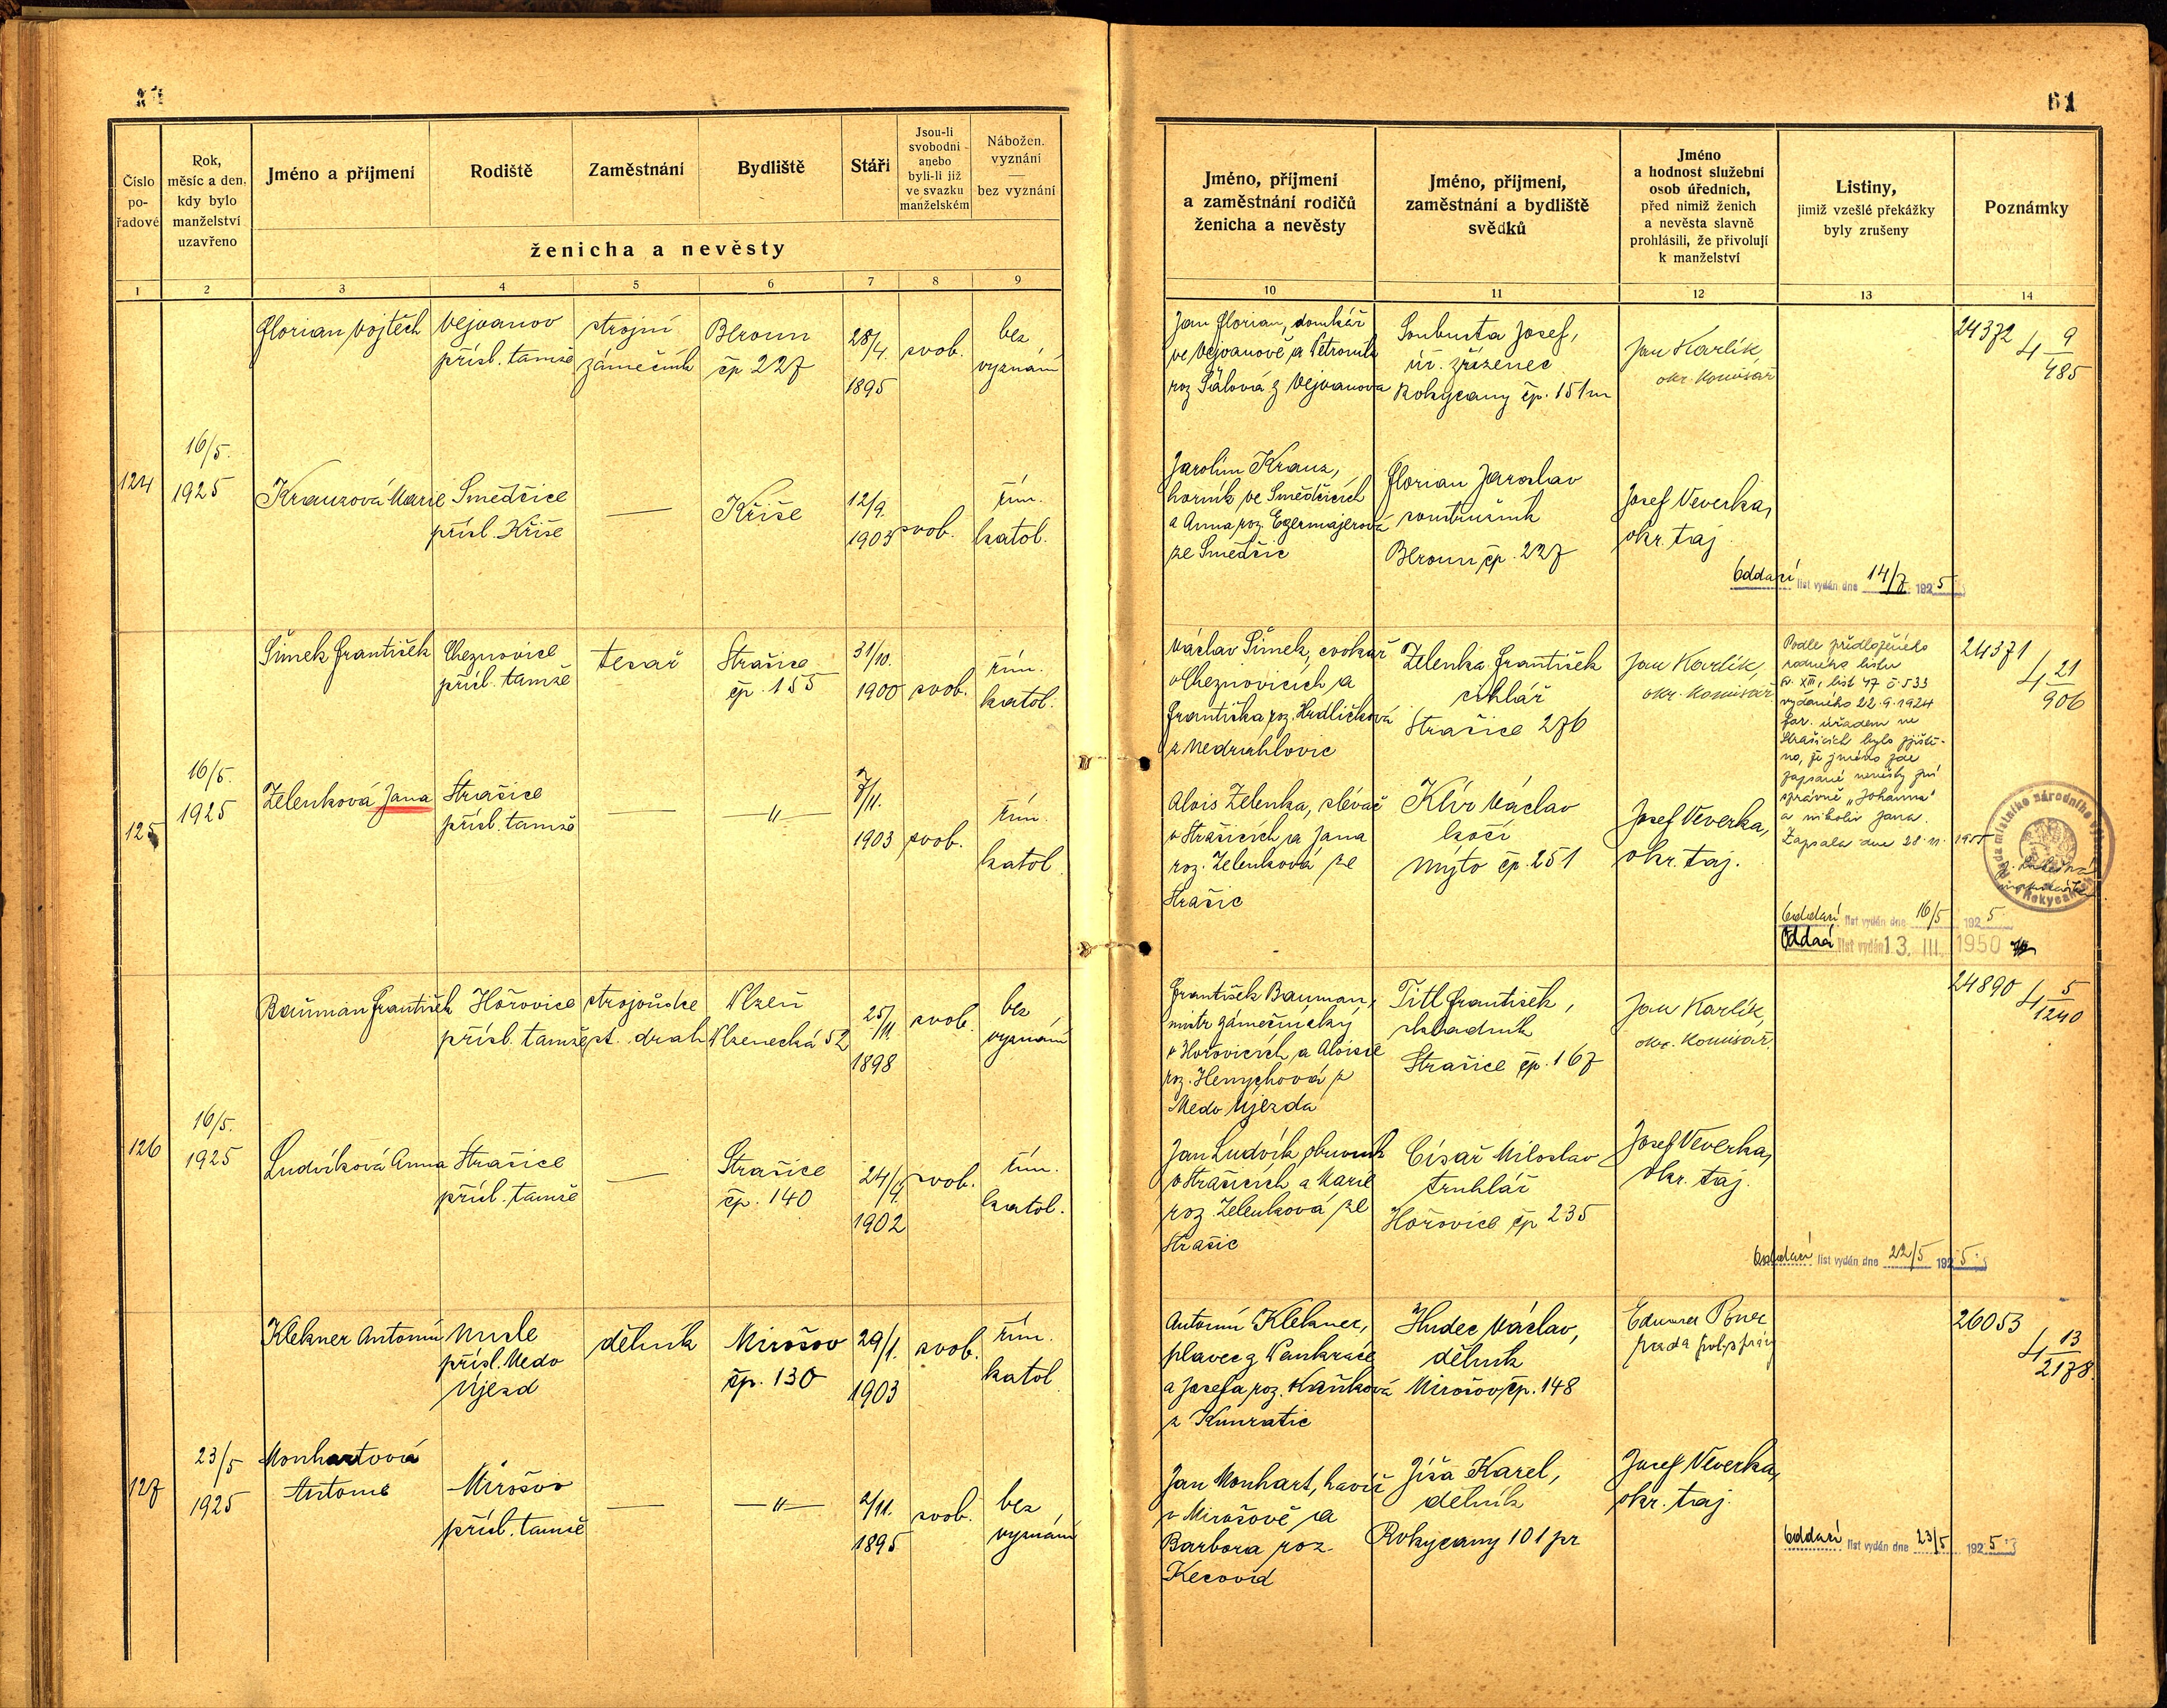 61
Číslo
po-
řadové
Rok,
měsíc a den,
kdy bylo
manželství
uzavřeno
Jméno a příjmení
Rodiště
Zaměstnání
Bydliště
Stáří
Jsou-li
svobodni
anebo
byli-li již
ve svazku
manželském
Nábožen.
vyznání
bez vyznání
ženicha a nevěsty
1 2 3 4 5 6 7 8 9
Florian Vojtěch Vejvanov strojní Beroun 28/4. svob. bez
přísl. tamže zámečník čp 227 1895 vyznání
16/5.
124 1925 Krauzová Marie Smědčice — Kříše 12/9. svob. řím.
přísl. Kříše 1903 katol.
Šimek František Cheznovice tesař Strašice 31/10. řím.
přísl. tamže čp. 155 1900 svob. katol.
16/5.
125 1925 Zelenková Jana Strašice — —"— 7/11. řím.
přísl. tamže 1903 svob. katol.
Bauman František Hořovice strojvůdce Plzeň 25/11. svob. bez
přísl. tamže st. drah Plzenecká 52 1898 vyznání
16/5.
126 1925 Ludvíková Anna Strašice — Strašice 24/4. svob. řím.
přísl. tamže čp. 140 1902 katol.
Klekner Antonín Nusle dělník Mirošov 29/1. svob. řím.
přísl. Medo čp. 130 1903 katol
Újezd
23/5 Monhartová
127 1925 Antonie Mirošov — —"— 2/11. svob. bez
přísl. tamže 1895 vyznání
Jméno, příjmení
a zaměstnání rodičů
ženicha a nevěsty
Jméno, příjmení,
zaměstnání a bydliště
svědků
Jméno
a hodnost služební
osob úředních,
před nimiž ženich
a nevěsta slavně
prohlásili, že přivolují
k manželství
Listiny,
jimiž vzešlé překážky
byly zrušeny
Poznámky
10 11 12 13 14
Jan Florian, domkář
ve Vejvanově a Petronila
roz z Vejvanova
Soubusta Josef,
úř. zřízenec
Rokycany čp. 151
Jan Karlík,
okr. komisař
24372 4 9/485
Jarolím Krauz,
horník ve Smědčicích
a Anna roz. Egermajerová
ze Smědčic
Florian Jaroslav
soustružník
Beroun čp. 227
Josef Veverka,
okr. taj.
Oddací list vydán dne 14/7 1925
Václav Šimek, cvokař
v Cheznovicích a
Františka roz. Hrdličková
z
Zelenka František
cihlář
Strašice 276
Jan Karlík,
okr. komisař
Podle předloženého
rodného listu
sv. XIII, list 47 č. 533
vydaného 22.9.1924
far. úřadem ve
Strašicích bylo zjiště-
no, že jméno zde
zapsané nevěsty zní
správně „Johanna"
a nikoliv Jana.
Zapsala dne 28.11. 1955
24371 4 21/906
Rada místního národního výboru
Rokycany
Alois Zelenka, slévač
v Strašicích a Jana
roz. Zelenková ze
Strašic
Klír Václav
kočí
Mýto čp. 251
Josef Veverka,
okr. taj.
Oddací list vydán dne 16/5 1925
Oddací list vydán 13. III. 1950
František Bauman,
mistr zámečnický
v Hořovicích a Aloisie
roz. Henychová z
Medo Újezda
Titl František,
skladník
Strašice čp. 167
Jan Karlík,
okr. komisař.
24890 4 5/1240
Jan Ludvík, obuvník
v Strašicích a Marie
roz. Zelenková ze
Strašic
Císař Miloslav
truhlář
Hořovice čp 235
Josef Veverka,
okr. taj.
Oddací list vydán dne 22/5 1925
Antonín Klekner,
plavec z Pankráce
a Josefa roz. Kaňková
z Kunratic
Hudec Václav,
dělník
Mirošov čp. 148
rada pol. správy
26053 4 13/2178
Jan Monhart, havíř
v Mirošově a
Barbora roz.
Kecová
Jíša Karel,
dělník
Rokycany 101 pr
Josef Veverka,
okr. taj.
Oddací list vydán dne 23/5 1925